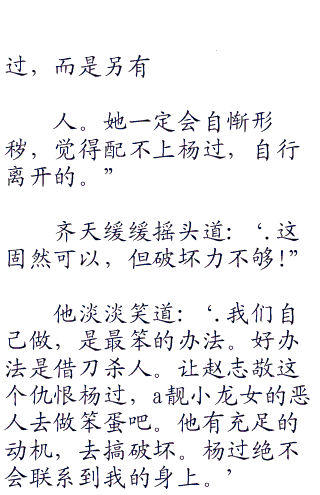 过，而是另有
人。她一定会自惭形
秽，觉得配不上杨过，自行
离开的。”
齐天缓缓摇头道：‘.这
固然可以，但破坏力不够!”
他淡淡笑道：‘.我们自
己做，是最笨的办法。好办
法是借刀杀人。让赵志敬这
个仇恨杨过，a靓小龙女的恶
人去做笨蛋吧。他有充足的
动机，去搞破坏。杨过绝不
会联系到我的身上。’